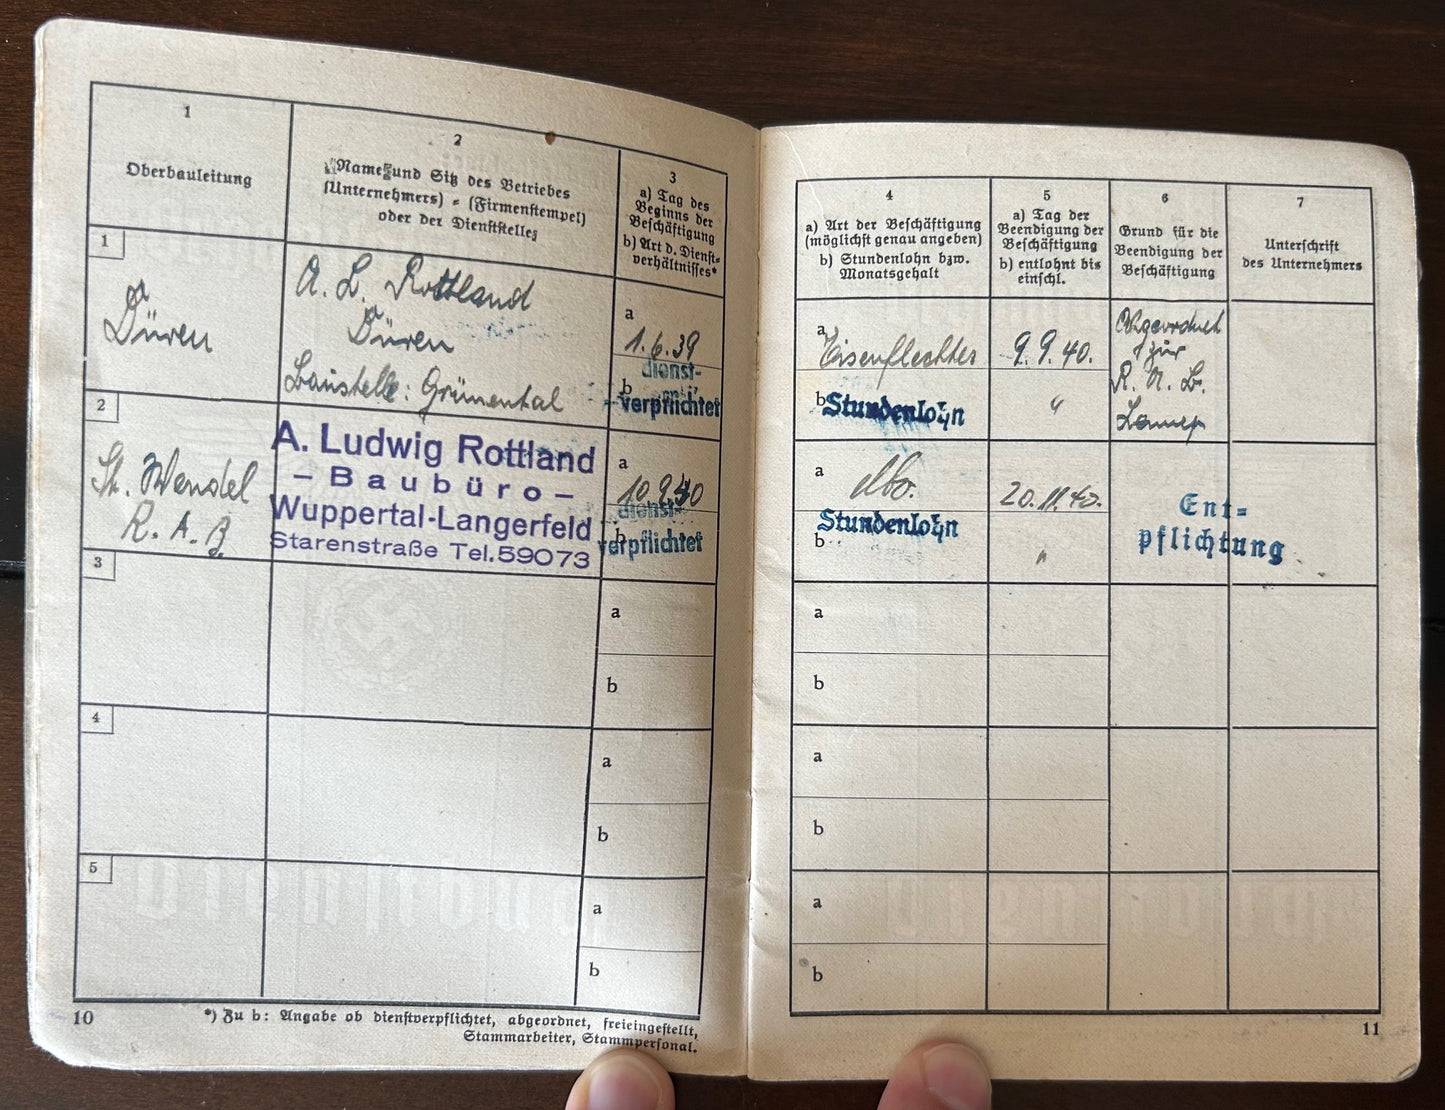 1
Oberbauleitung
2
Name und Sitz des Betriebes
(Unternehmers) - (Firmenstempel)
oder der Dienststelle
3
a) Tag des
Beginns der
Beschäftigung
b) Art d. Dienst-
verhältnisses*
1
Düren
A. L. Rottland
Düren
Baustelle: Grünental
a
1.6.39
b
dienst-
verpflichtet
2
St. Wendel
R. A. B.
A. Ludwig Rottland
- Baubüro -
Wuppertal-Langerfeld
Starenstraße Tel. 59073
a
10.9.40
b
dienst-
verpflichtet
3
a
b
4
a
b
5
a
b
10
*) Zu b: Angabe ob dienstverpflichtet, abgeordnet, freieingestellt,
Stammarbeiter, Stammpersonal.
4
a) Art der Beschäftigung
(möglichst genau angeben)
b) Stundenlohn bzw.
Monatsgehalt
5
a) Tag der
Beendigung der
Beschäftigung
b) entlohnt bis
einschl.
6
Grund für die
Beendigung der
Beschäftigung
7
Unterschrift
des Unternehmers
a
Eisenflechter
b
Stundenlohn
9.9.40.
"
Abgeordnet
zur
R. A. B.
a
dto.
b
Stundenlohn
20.11.40.
"
Ent-
pflichtung
a
b
a
b
a
b
11